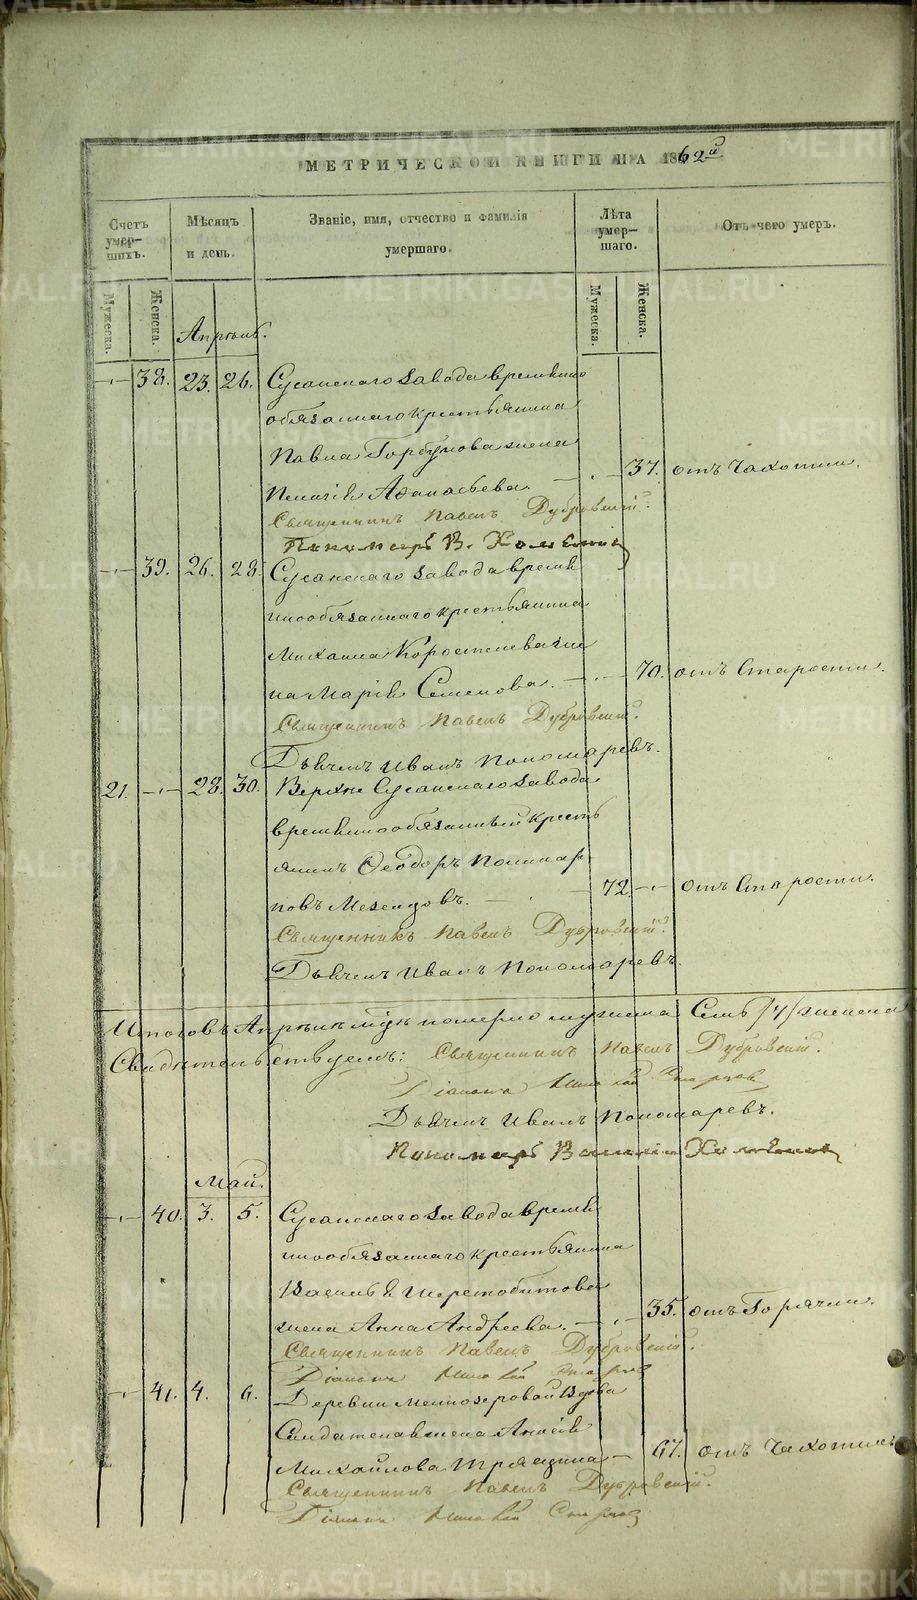 МЕТРИЧЕСКОЙ КНИГИ НА 1862й
Счетъ умер-шихъ.
Мѣсяцъ и день.
Званіе, имя, отчество и фамилія умершаго.
Лѣта умер-шаго.
Отъ чего умеръ.
Мужеска.
Женска.
Мужеска.
Женска.
Апрѣль.
38. 23. 26. Сусанскаго завода временно
обязаннаго крестьянина
Павла Горбунова жена
37. отъ Чахотки.
Афанасьева.
Священникъ Павелъ Дубровскій.
Пономарь В.
39. 26. 28. Сусанскаго завода време
ннообязаннаго крестьянина
Михаила Коростелева же
на Марія Семенова. 70. отъ Старости.
Священникъ Павелъ Дубровскій.
Дьячекъ Иванъ Пономаревъ.
21. 28. 30. Верхне Сусанскаго завода
временнообязанный кресть
янинъ Ѳеодоръ
72. отъ Старости.
Священникъ Павелъ Дубровскій.
Дьячекъ Иванъ Пономаревъ.
Итого въ Апрѣлѣ м̃цѣ померло мужеска Семь /7/ женска
Свидѣтельствуемъ: Священникъ Павелъ Дубровскій.
Діаконъ
Дьячекъ Иванъ Пономаревъ.
Пономарь Василій
Май.
40. 3. 5. Сусанскаго завода време
ннообязаннаго крестьянина
Василья Шерстобитова
жена Анна Андреева. 35. отъ Горячки.
Священникъ Павелъ Дубровскій.
Діаконъ
41. 4. 6. Деревни Мелкозеровой вдова
Солдатская жена
Михайлова 67. отъ Чахотки
Священникъ Павелъ Дубровскій.
Діаконъ
METRIKI.GASO-URAL.RU